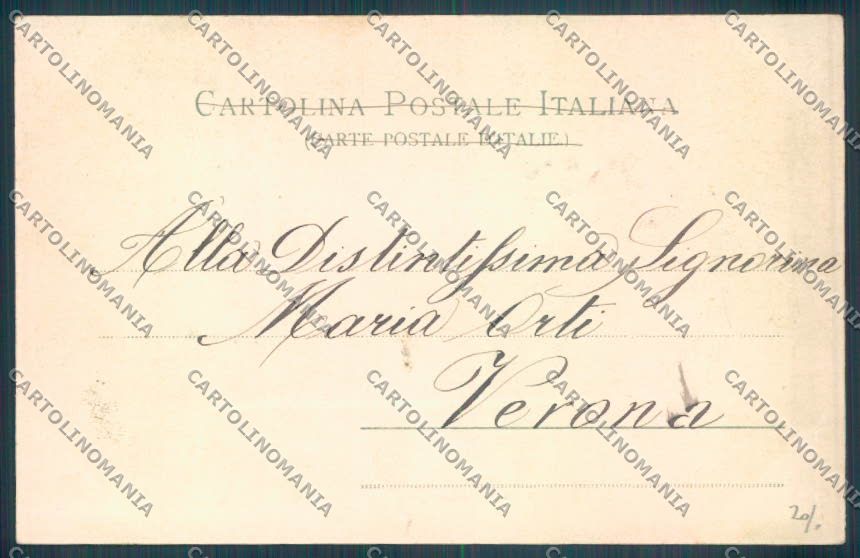 CARTOLINA POSTALE ITALIANA
(CARTE POSTALE D'ITALIE.)
Alla Distintissima Signorina
Maria Orti
Verona
20/.
CARTOLINOMANIA CARTOLINOMANIA CARTOLINOMANIA CARTOLINOMANIA CARTOLINOMANIA
CARTOLINOMANIA CARTOLINOMANIA CARTOLINOMANIA CARTOLINOMANIA CARTOLINOMANIA
CARTOLINOMANIA CARTOLINOMANIA CARTOLINOMANIA CARTOLINOMANIA CARTOLINOMANIA